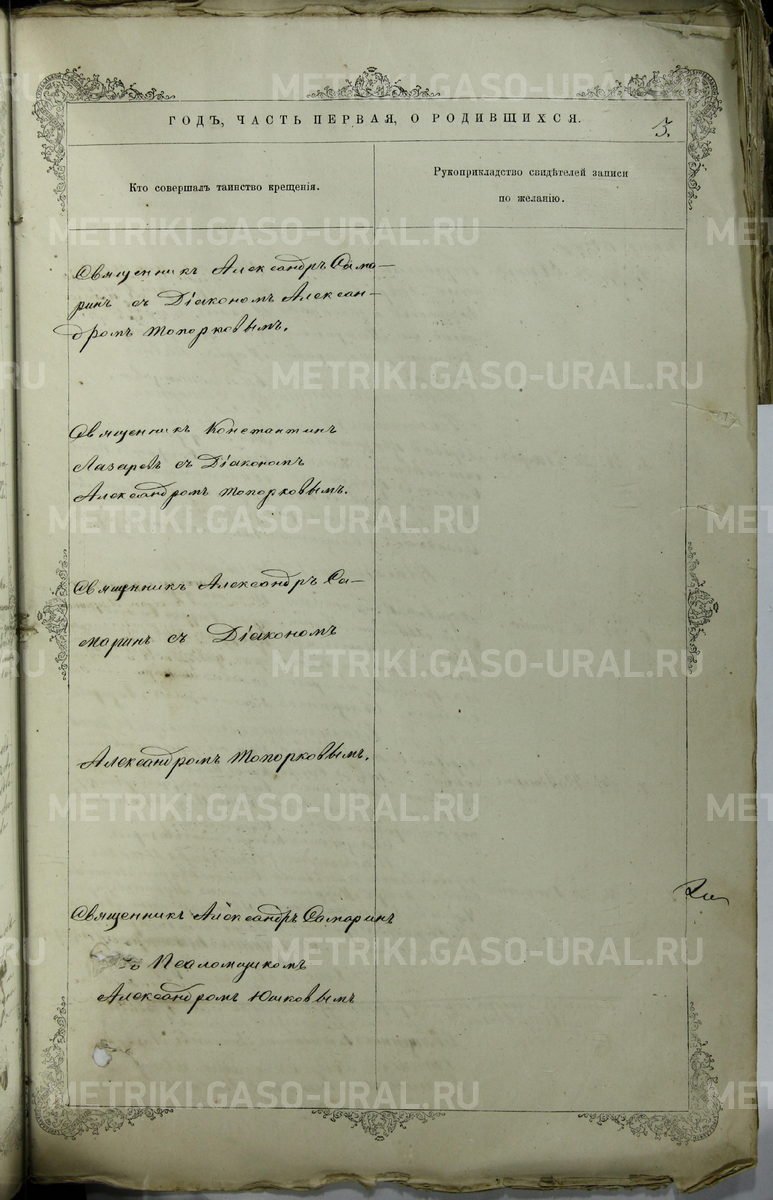 ГОДЪ, ЧАСТЬ ПЕРВАЯ, О РОДИВШИХСЯ.
3.
Кто совершалъ таинство крещенія.
Рукоприкладство свидѣтелей записи
по желанію.
Священникъ Александръ Сама-
ринъ съ Діакономъ Алексан-
дромъ Топорковымъ.
Священникъ Константинъ
Лазаревъ съ Діакономъ
Александромъ Топорковымъ.
Священникъ Александръ Са-
маринъ съ Діакономъ
Александромъ Топорковымъ.
Священникъ Александръ Самаринъ
съ Псаломщикомъ
Александромъ Юшковымъ
METRIKI.GASO-URAL.RU